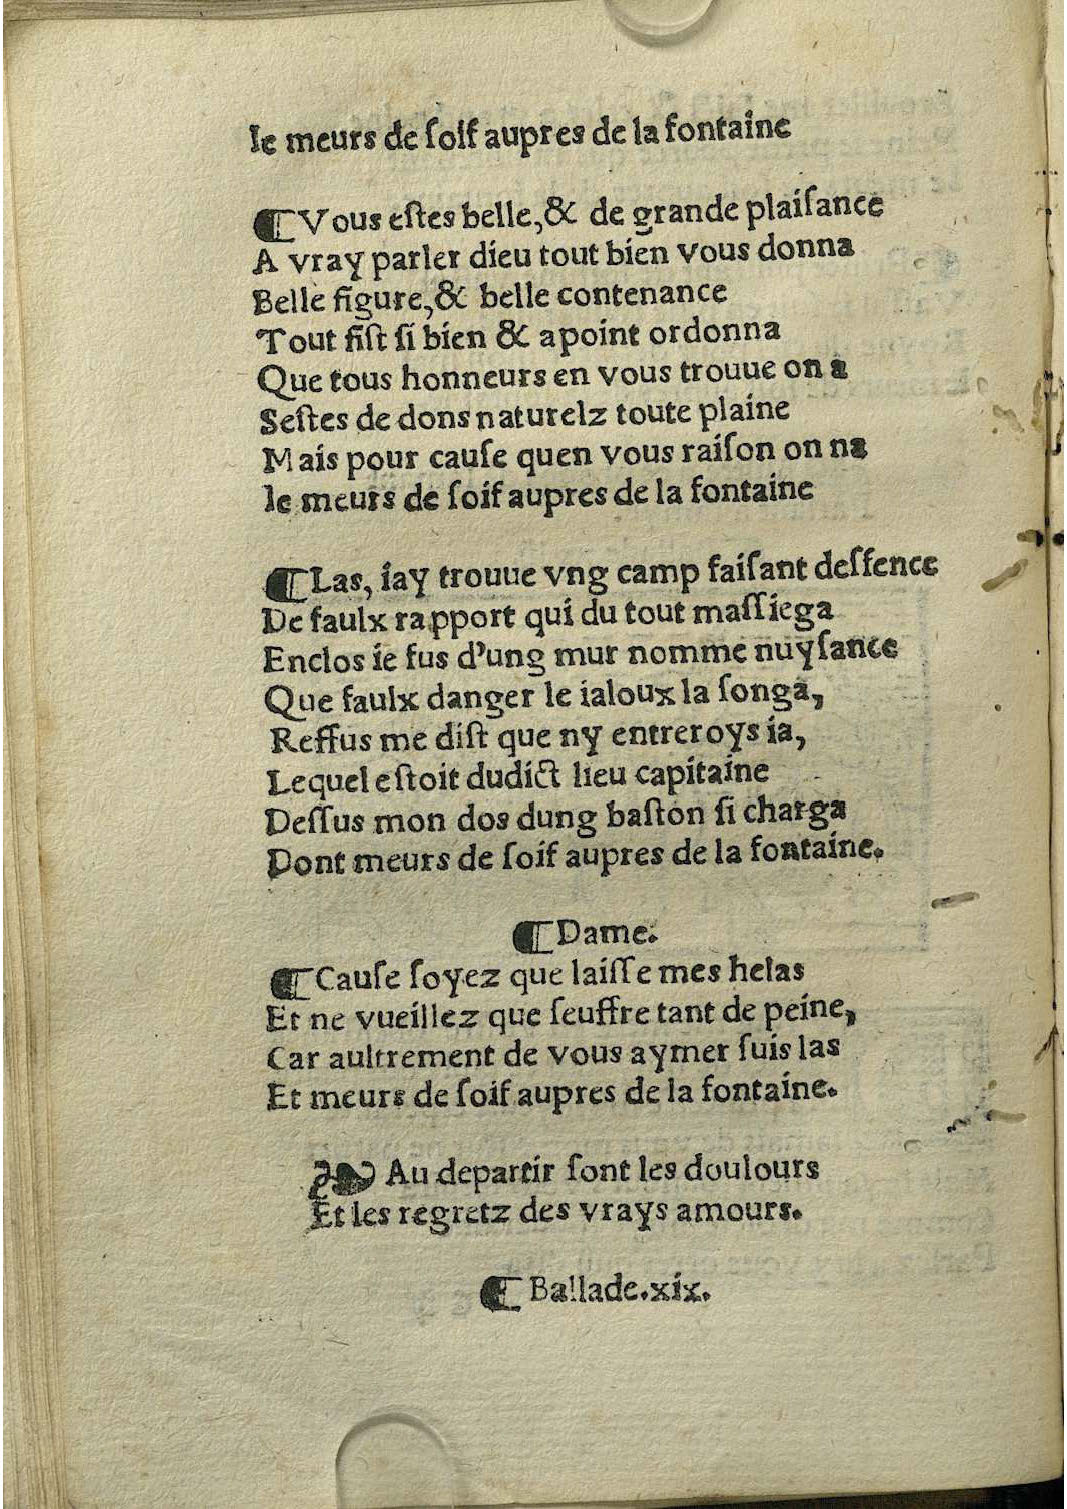 Ie meurs de ſoif aupres de la fontaine
¶ Vous eſtes belle,& de grande plaiſance
A vray parler dieu tout bien vous donna
Belle figure,& belle contenance
Tout fiſt ſi bien & apoint ordonna
Que tous honneurs en vous trouue on a
Seſtes de dons naturelz toute plaine
Mais pour cauſe quen vous raiſon on na
Ie meurs de ſoif aupres de la fontaine
¶ Las, iay trouue vng camp faiſant deſfence
De faulx rapport qui du tout maſſiega
Enclos ie fus d'ung mur nomme nuyſance
Que faulx danger le ialoux la ſonga,
Reffus me diſt que ny entreroys ia,
Lequel eſtoit dudict lieu capitaine
Deſſus mon dos dung baſton ſi charga
Dont meurs de ſoif aupres de la fontaine.
¶ Dame.
¶ Cauſe ſoyez que laiſſe mes helas
Et ne vueillez que ſeuffre tant de peine,
Car aultrement de vous aymer ſuis las
Et meurs de ſoif aupres de la fontaine.
❧ Au departir ſont les doulours
Et les regretz des vrays amours.
¶ Ballade.xix.